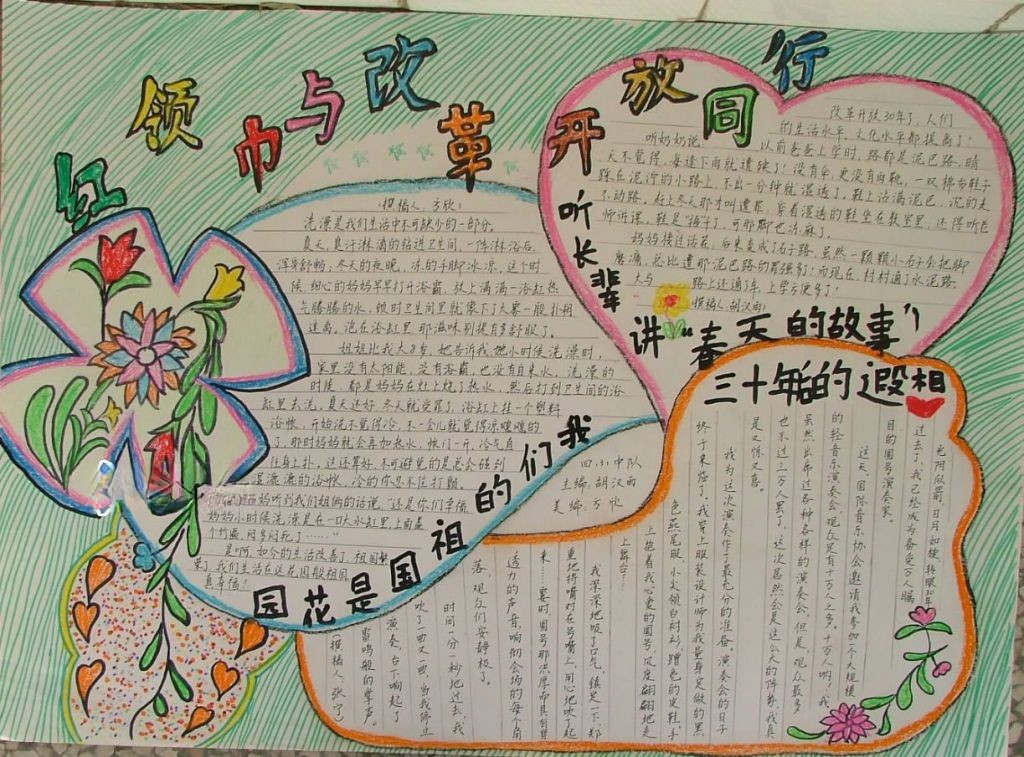 红领巾与改革开放同行
(撰稿人:方欣)
洗澡是我们生活中不可缺少的一部分。
夏天,臭汗淋漓的钻进卫生间,一阵淋浴后,
浑身舒畅;冬天的夜晚,冻的手脚冰凉,这个时
候细心的妈妈早早打开浴霸,放上满满一浴缸热
气腾腾的水,顿时卫生间里就像下了大雾一般扑朔
迷离。泡在浴缸里,那滋味别提有多舒服了。
姐姐比我大8岁,她告诉我,她小时候洗澡时,
家里没有太阳能,没有浴霸,也没有自来水,洗澡的
时候,都是妈妈在灶上烧了热水,然后打到卫生间的浴
缸里去洗,夏天还好,冬天就受罪了,浴缸上挂一个塑料
浴帐,开始洗不觉得冷,不一会儿就觉得凉飕飕的
了,那时妈妈就会再加热水,帐门一开,冷气直
往身上扑,这还算好,不可避免的是总会碰到
湿漉漉的浴帐,冷的你忍不住打颤。
妈妈听到我们姐俩的话说,“还是你们幸福
妈妈小时候洗澡是在一口大水缸里,上面盖
个竹匾,闷多闷死了……”
是啊,如今的生活改善了,祖国繁
荣了,我们生活在这花园般祖国
真幸福!
我们的祖国是花园
听长辈讲“春天的故事”!
改革开放30年了,人们
的生活水平、文化水平都提高了!
听奶奶说,以前爸爸上学时,路都是泥巴路,晴
天不觉得,每逢下雨就遭殃了!没有伞,更没有雨靴,一双棉布鞋子
踩在泥泞的小路上,不出一分钟就湿透了,鞋上沾满泥巴,沉的走
不动路,赶上冬天那才叫遭罪,穿着湿透的鞋坐在教室里,还得听老
师讲课,鞋是“海汗了,可那脚也冻麻了。
妈妈接过话茬,后来变成了石子路,虽然一颗颗小石子会把脚
磨痛,总比遭那泥巴路的罪强多了!而现在,村村通了水泥路,
大马路上还通了车,上学方便多了!
(撰稿人:胡汉雨)
四、小中队
主编:胡汉雨
美编:方欣
三十年的遐想
光阴似箭,日月如梭,转眼30年
过去了,我已经成为备受万人瞩
目的圆号演奏家。
这天,国际音乐协会邀请我参加一个大规模
的轻音乐演奏会,观众足有十万人之多。十万人哟!我
虽然出席过各种各样的演奏会,但是,观众最多
也不过三万人罢了。这次居然会是这么大的阵势,我真
是又惊又喜。
我为这次演奏作了最充分的准备。演奏会的日子
终于来临了,我穿上服装设计师为我量身定做的黑
色燕尾服,小尖领白衬衫,蹭亮的皮鞋,手
上抱着我心爱的圆号,风度翩翩地走
上舞台……
我深深地吸了口气,镇定一下,郑
重地将嘴对在号嘴上,用心地吹了起
来……霎时,圆号那浑厚而具有穿
透力的声音,响彻会场的每个角
落,观众们安静极了。
时间一分一秒地过去,我
吹了一曲又一曲,当我停止
演奏,台下响起了
雷鸣般的掌声。
(撰稿人:张宁)